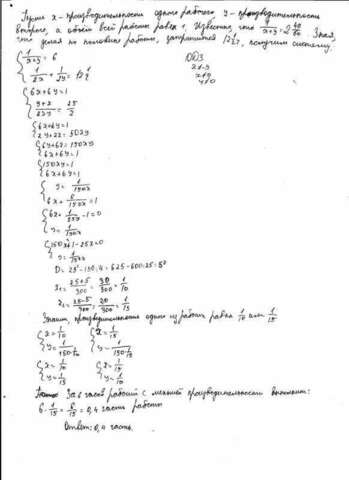 Пусть x - производительность одного рабочего y - производительность
второго, а объём всей работы равен 1. Известно, что
Зная,
что делая по половине работы, затратят 12 1/2, получим систему.
ОДЗ
{ 1/(x+y) = 6
1/2x + 1/2y = 12 1/2
{ 6x+6y=1
(y+x)/2xy = 25/2
{ 6x+6y=1
2y+2x=50xy
{ 6y+6x=150xy
6x+6y=1
{ 150xy=1
6x+6y=1
{ y = 1/150x
6x + 6/150x = 1
{ 6x + 1/25x - 1 = 0
y = 1/150x
{ 150x²+1-25x=0
y = 1/150x
D = 25² - 150·4 = 625-600=25=5²
x₁ = (25+5)/300 = 30/300 = 1/10
x₂ = (25-5)/300 = 20/300 = 1/15
Значит, производительность одного из рабочих равна 1/10 или 1/15
{ x=1/10 { x=1/15
{ x=1/10 { x=1/15
y=1/15 y=1/10
За 6 часов рабочий с меньшей производительностью выполнит:
6 · 1/15 = 6/15 = 0,4 часть работы
Ответ: 0,4 часть.